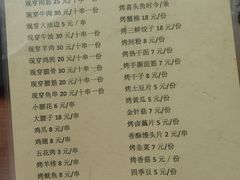 现穿肉筋 25 元/十串一份
现穿牛肉 30 元/十串一份
现穿大油边 5 元/串
现穿牛油 30 元/十串一份
现穿羊肉 30 元/十串一份
现穿鸡胗 20 元/十串一份
现穿脆骨 30 元/十串一份
现穿腰筋 20 元/十串一份
现穿鱼串 20 元/十串一份
小腰花 6 元/串
大腰子 18 元/串
鸡爪 8 元/串
鸡翅 8 元/串
五花肉 3 元/串
烤羊排 8 元/串
烤鱿鱼 8 元/串
烤喜头鱼时令/条
烤蟹棒 18 元/份
烤三鲜饺子 18 元/份
烤河粉 8 元/份
烤热干面 7 元/份
烤手擀面筋 7 元/份
烤干子 5 元/份
烤土豆片 5 元/份
烤黄瓜 5 元/份
金针菇 7 元/份
烤卤藕片 5 元/份
香酥馒头片 2 元/串
烤韭菜 7 元/份
烤香菇 5 元/份
四季豆 5 元/份